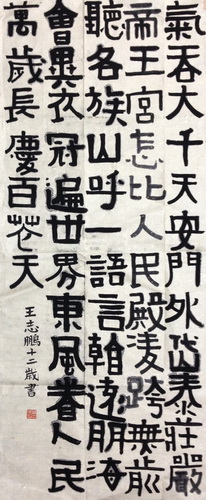 氣吞大千天安門外岱泰莊嚴
帝王宮怎比人民殿淩跨無前
聽各族山呼一語言翰遠朋海
會異衣冠遍世界東風眷人民
萬歲長慶百花天
王志鵬十二歲書